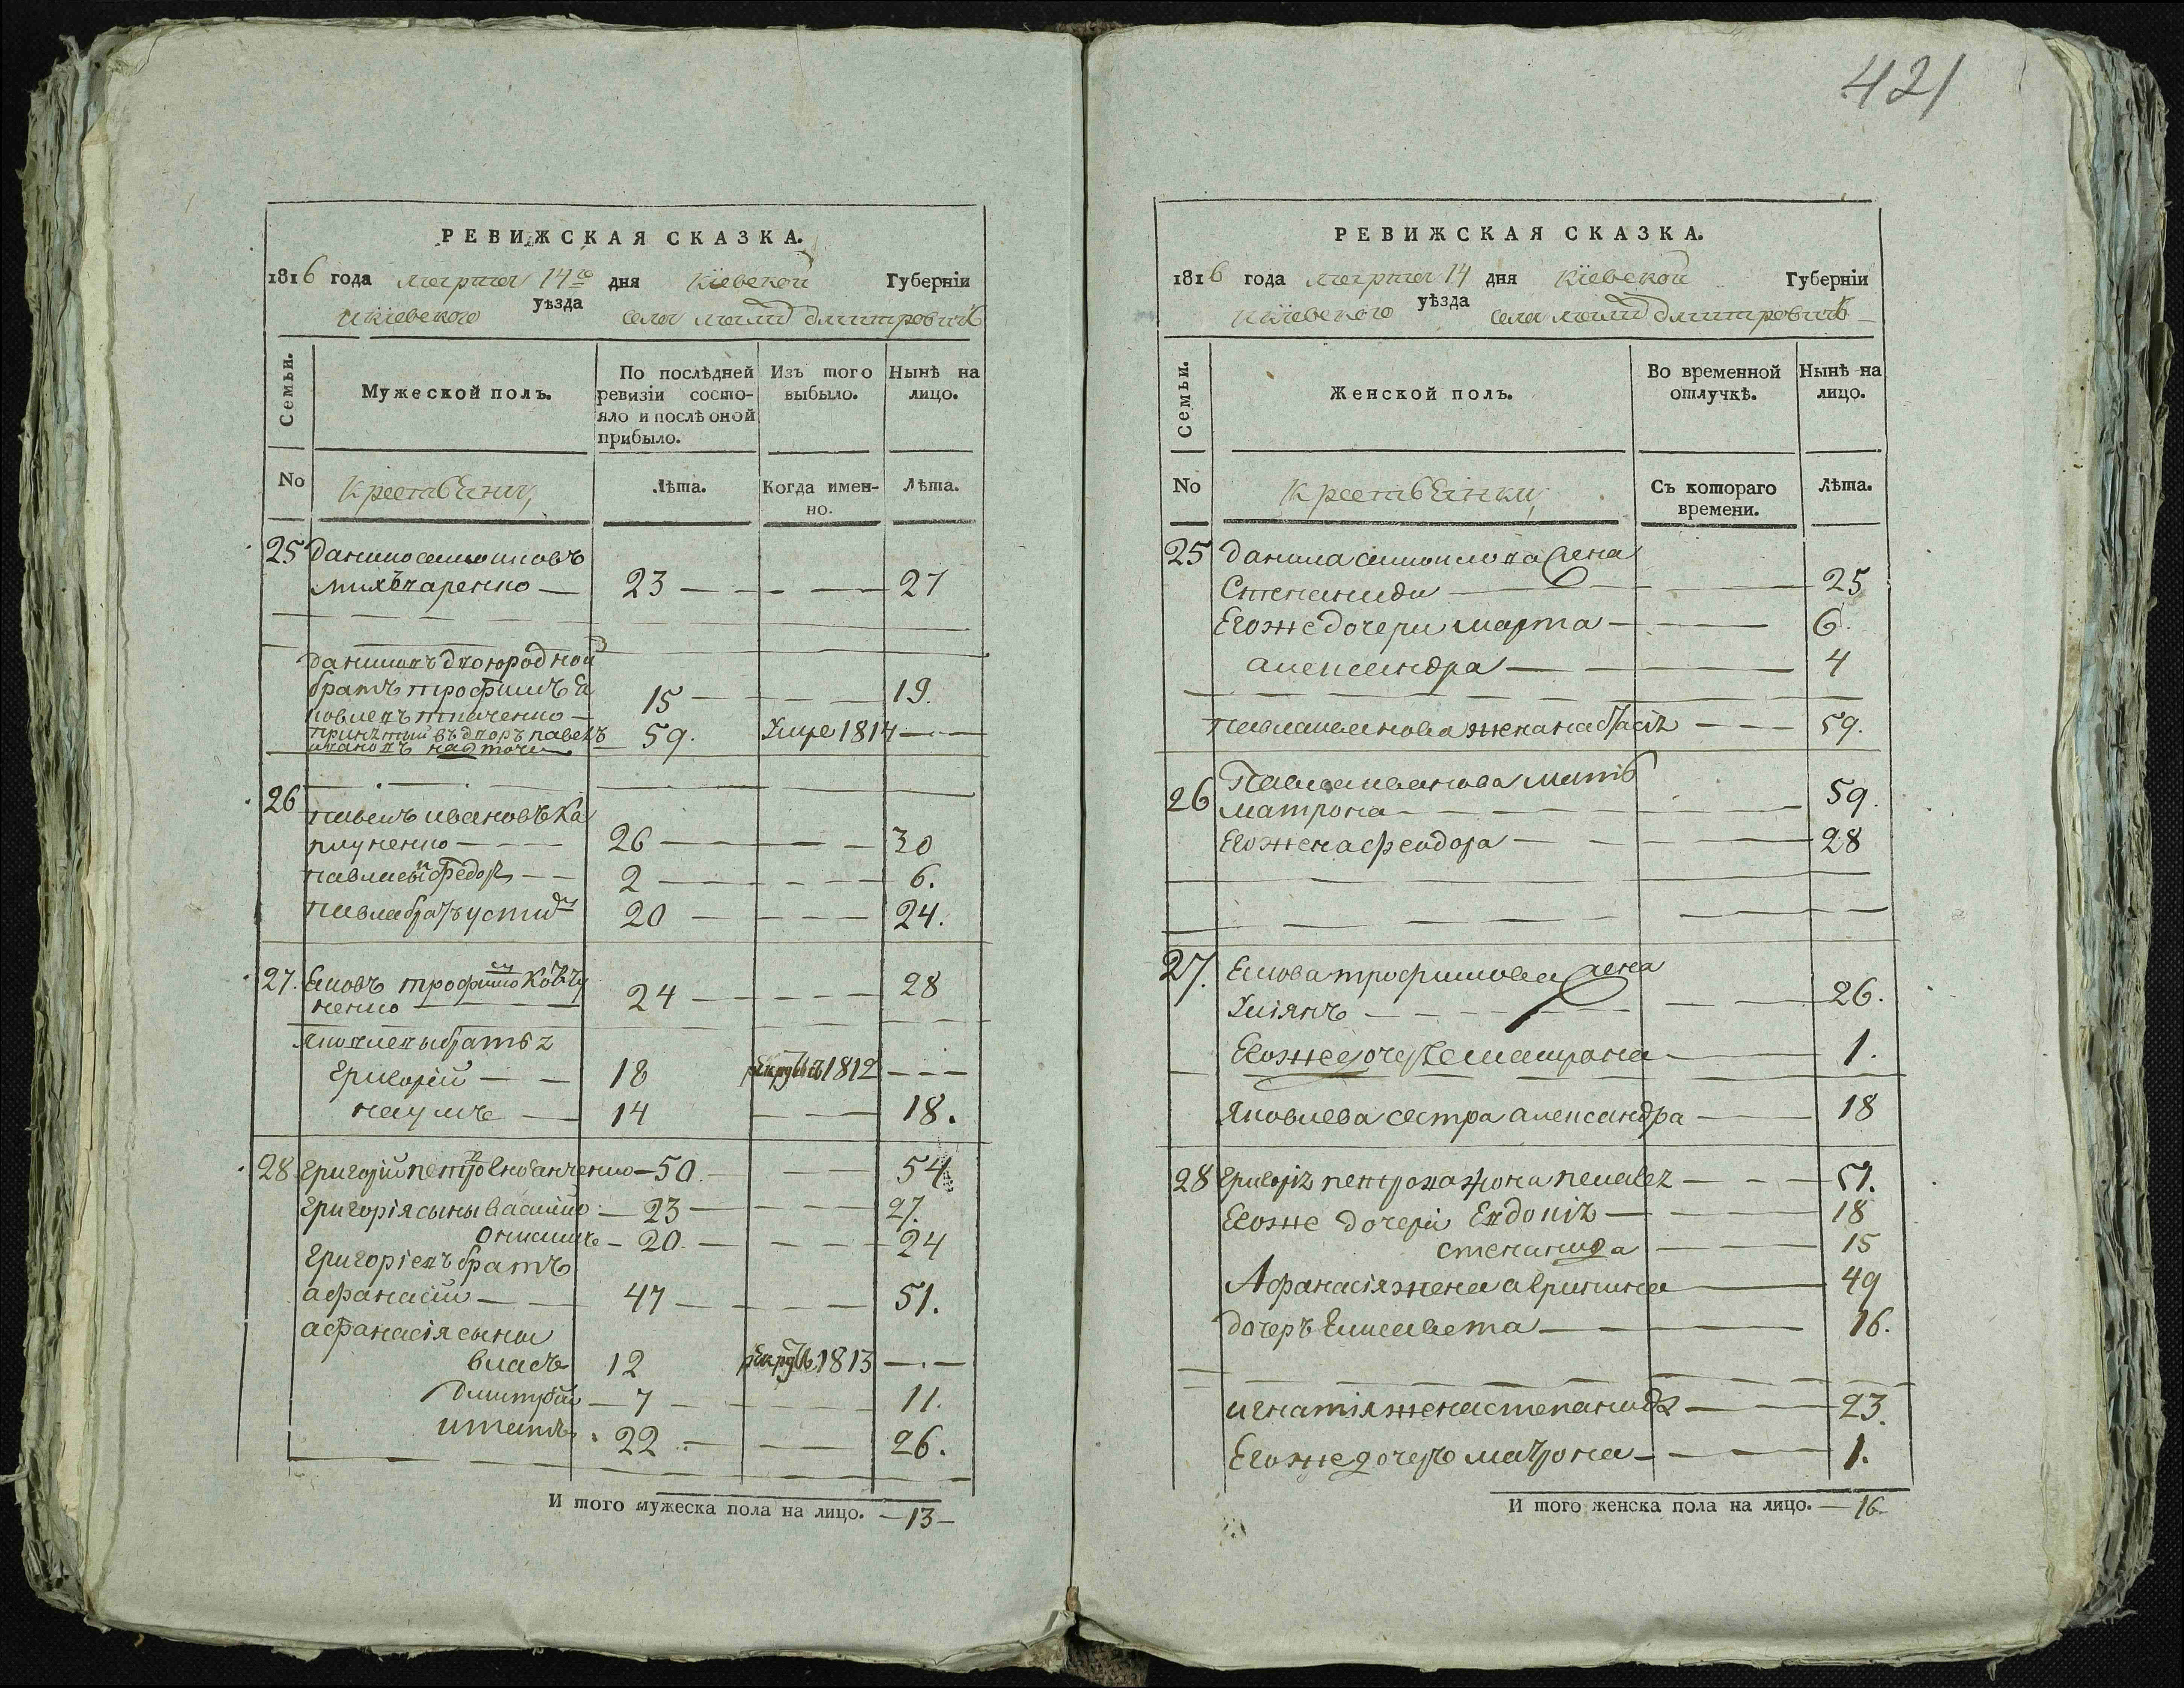 421
РЕВИЖСКАЯ СКАЗКА.
1816 года марта 14го дня Кіевской Губерніи
Икіевского уѣзда села малой дмитровичѣ
Семьи.
Мужеской полъ.
По послѣдней ревизіи состо-
яло и послѣ оной
прибыло.
Изъ того
выбыло.
Нынѣ на
лицо.
No
Крестьяни
Лѣта.
Когда имен-
но.
Лѣта.
25 Данило самоиловъ
23 27
даниловъ двоюродной
братъ трофимъ Я
ковлевъ ткаченко 15 19.
принѣтый въ дворъ павелъ
ивановъ 59. Умре 1814
26
павелъ ивановъ Ка
26 30
павла сынъ Федоръ 2 6.
павла братъ устинъ 20 24.
27. Яковъ трофимовъ Ковту
ненко 24 28
Яковлевы братья
Григорій 18 рекрутъ 1812
наумъ 14 18.
28 Григорій петровъ 50. 54
Григорія сыны василій 23 27.
Онисимъ 20. 24
Григоріевъ братъ
афанасій 47 51.
афанасія сыны
власъ 12 рекрутъ 1813
Дмитрій 7 11.
игнатъ 22 26.
И того мужеска пола на лицо. 13
РЕВИЖСКАЯ СКАЗКА.
1816 года марта 14 дня Кіевской Губерніи
Икіевского уѣзда села малой дмитровичѣ
Семьи.
Женской полъ.
Во временной
отлучкѣ.
Нынѣ на
лицо.
No
Крестьянки
Съ котораго
времени.
Лѣта.
25 Данила самоилова жена
Степанида 25
Его же дочери марта 6.
александра 4
павла иванова жена настасія 59.
26 Павла иванова мать
матрона 59.
Его жена феодора 28
27. Якова трофимова жена
Уліянъ 26.
Его же дочерь 1.
Яковлева сестра александра 18
28 Григорія петрова жона пелагея 51.
Его же дочери Евдокія 18
степанида 15
Афанасія жена агрипина 49
дочеръ Елисавета 16.
игнатія жена степанида 23.
Его же дочерь матрона 1.
И того женска пола на лицо. 16